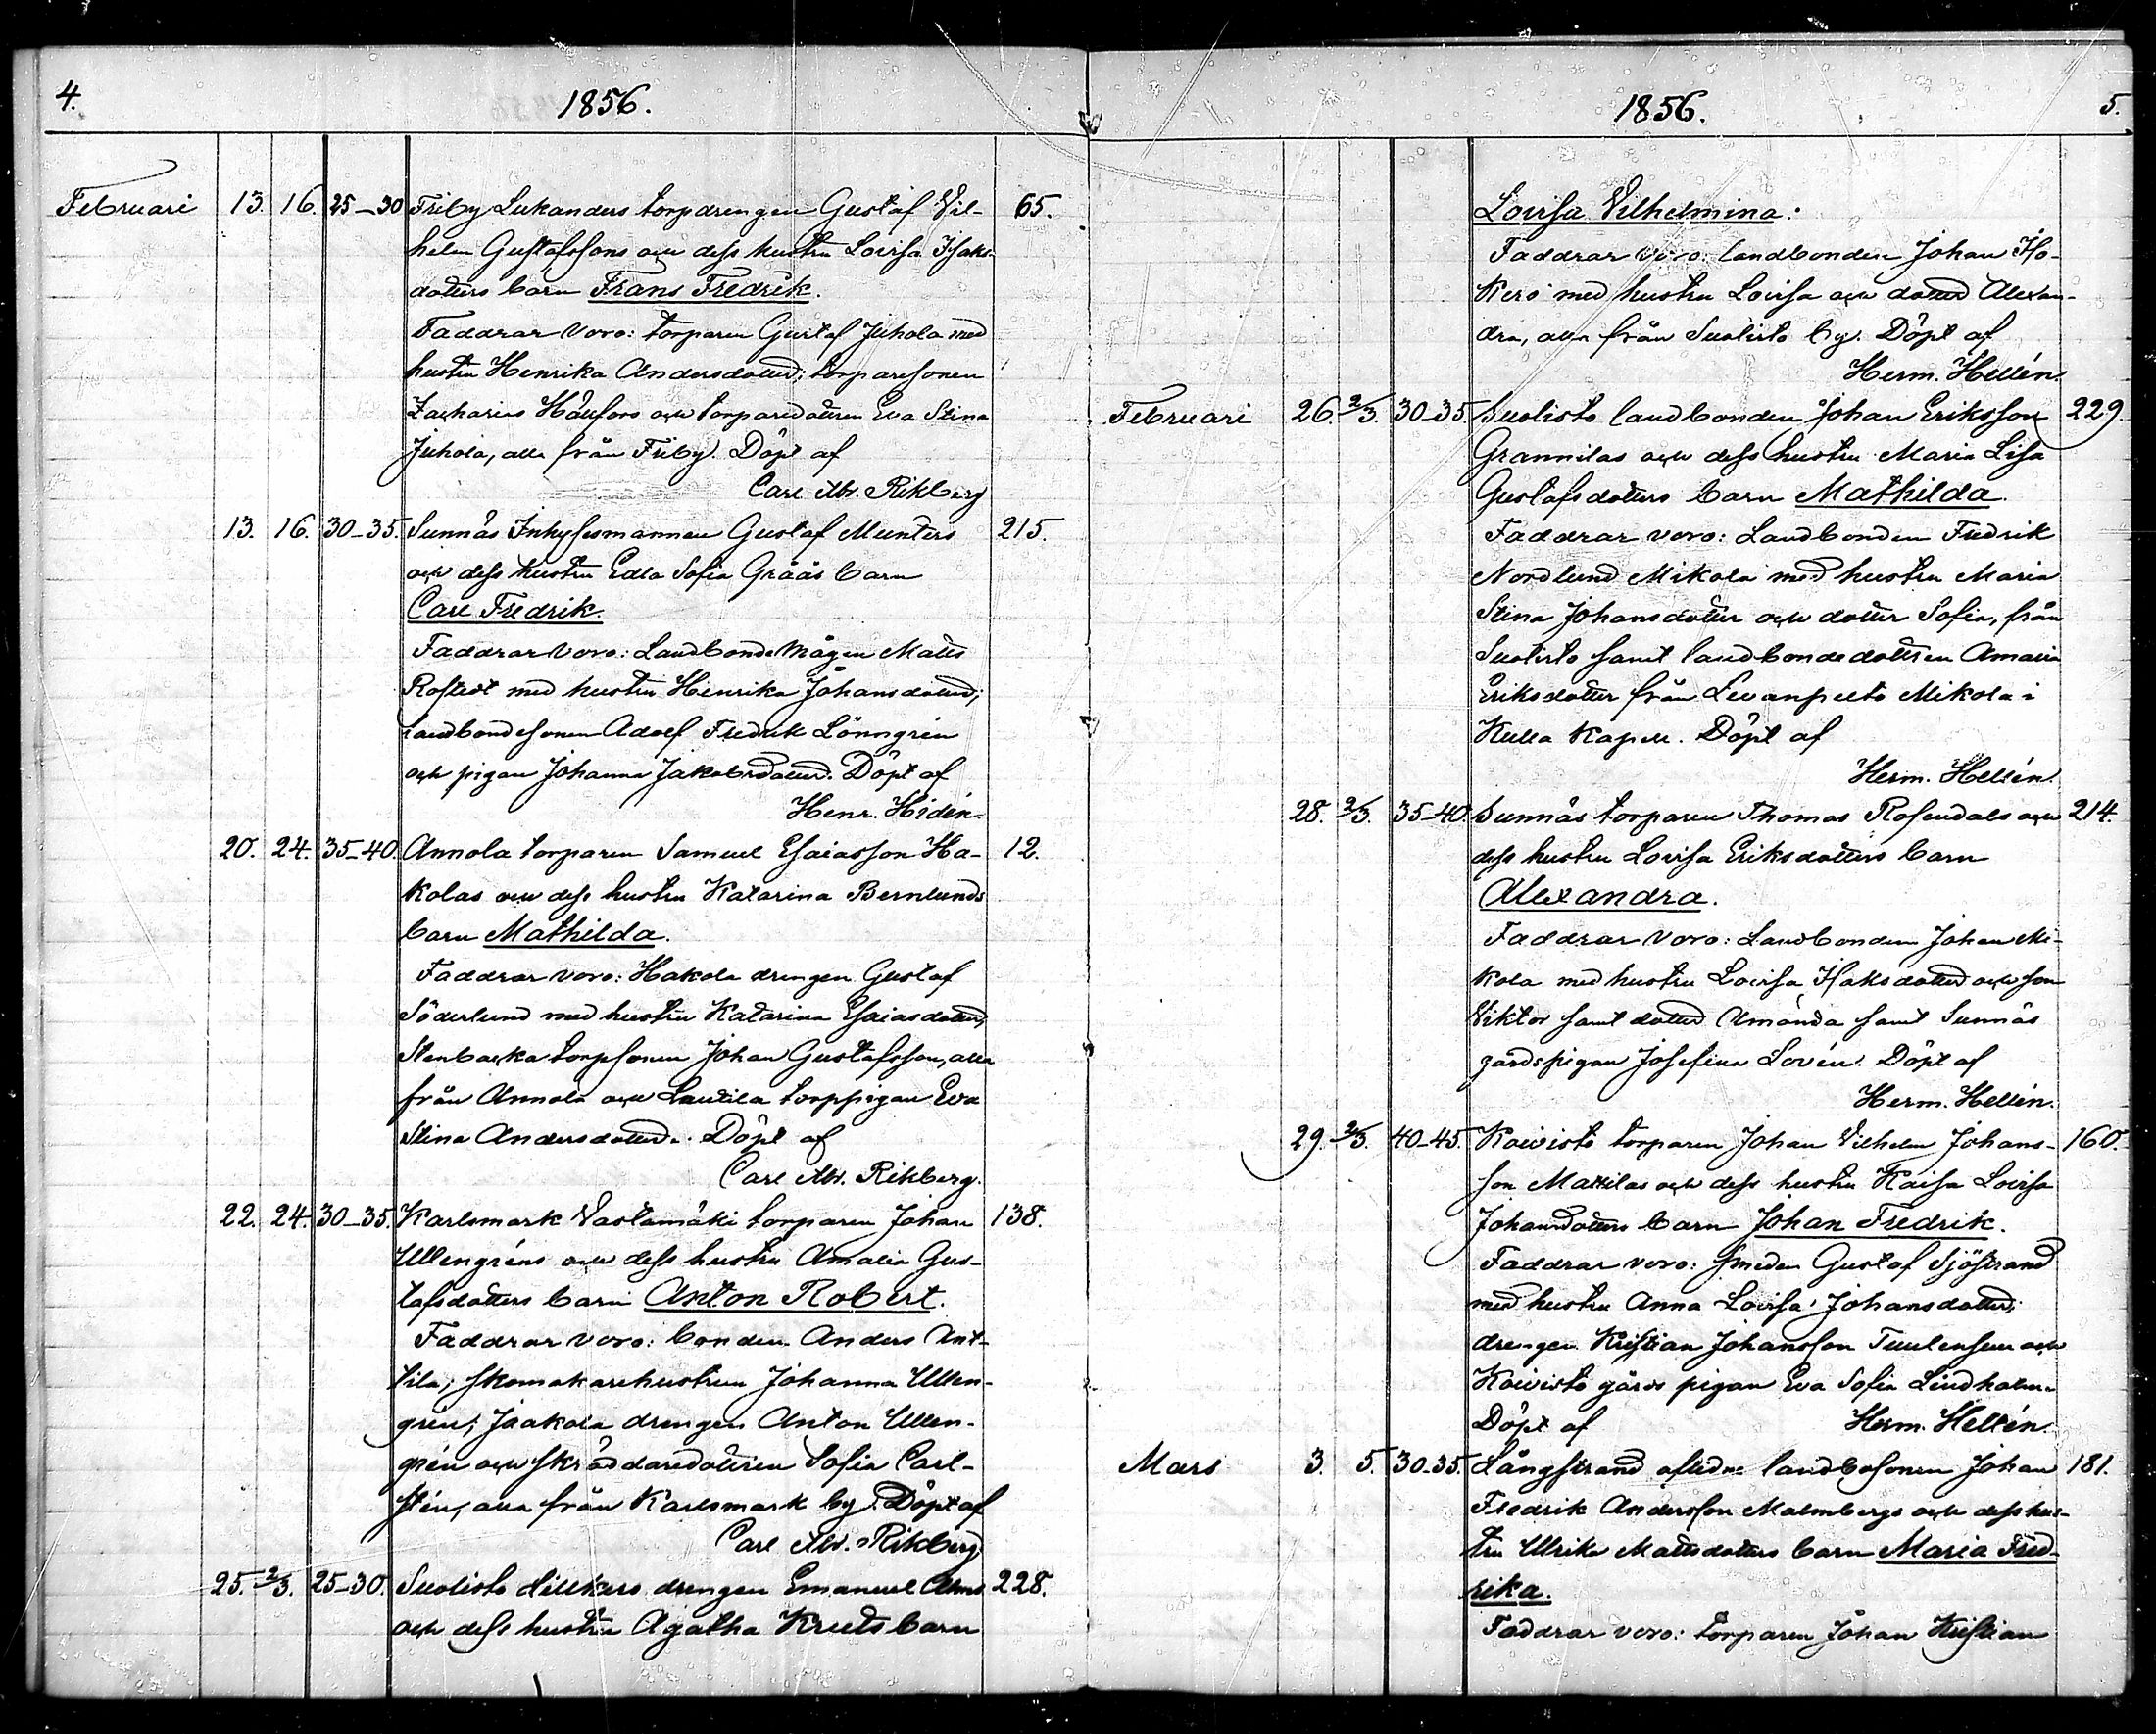 4.
1856.
Februari 13. 16. 25-30 Friby Lukanders torpdrengen Gustaf Vil- 65.
helm Gustafssons och dess hustru Lovisa Isaks-
dotters barn Frans Fredrik.
Faddrar voro: torparen Gustaf Juhola med
hustru Henrika Andersdotter; torparesonen
Zacharias och torparedottren Eva Stina
Juhola, alla från Friby. Döpt af
Carl Abr. Rikberg
13. 16. 30-35. Sunnäs Inhysesmannen Gustaf Munters 215.
och dess hustru Edla Sofia Grääs barn
Carl Fredrik.
Faddrar voro: Landbondemågen Matts
Rostedt med hustru Henrika Johansdotter;
landbondesonen Adolf Fredrik Lönngrén
och pigan Johanna Jakobsdotter. Döpt af
Henr. Hidén.
20. 24. 35-40. Annola torparen Samuel Esaiasson Ha- 12.
kolas och dess hustru Katarina Bernlunds
barn Mathilda.
Faddrar voro: Hakola drengen Gustaf
Söderlund med hustru Katarina Esaiasdotter,
Stenbacka torpsonen Johan Gustafsson, alla
från Annola och Lautila torppigan Eva
Stina Andersdotter. Döpt af
Carl Abr. Rikberg.
22. 24. 30-35. Karlsmark Vastamäki torparen Johan 138.
Ullengréns och dess hustru Amalia Gus-
tafsdotters barn Anton Robert.
Faddrar voro: bonden Anders Ant-
tila; skomakarehustrun Johanna Ullen-
grén; Jaakola drengen Anton Ullen-
grén och skräddaredottren Sofia Carl-
stén, alla från Karlsmark by. Döpt af
Carl Abr. Rikberg
25. 2/3. 25-30. Suolisto Lillkero drengen Emanuel 228.
och dess hustru Agatha Kruts barn
1856.
5.
Lovisa Vilhelmina.
Faddrar voro: landbonden Johan Iso-
Kero med hustru Lovisa och dotter Alexan-
dra, alla från Suolisto by. Döpt af
Herm. Hellén.
Februari 26. 2/3. 30-35. Suolisto landbonden Johan Eriksson 229.
Grannilas och dess hustru Maria Lisa
Gustafsdotters barn Mathilda.
Faddrar voro: Landbonden Fredrik
Nordlund Mikola med hustru Maria
Stina Johansdotter och dotter Sofia, från
Suolisto samt landbondedottren Amalia
Eriksdotter från Levanpelto Mikola i
Kulla Kapell. Döpt af
Herm. Hellén.
28. 2/3. 35-40. Sunnäs torparen Thomas Rosendals och 214.
dess hustru Lovisa Eriksdotters barn
Alexandra.
Faddrar voro: Landbonden Johan Mi-
kola med hustru Lovisa Isaksdotter och son
Viktor samt dotter Amanda samt Sunnäs
gårdspigan Josefina Lovén. Döpt af
Herm. Hellén.
29. 2/3. 40-45. Koivisto torparen Johan Vilhelm Johans- 160.
son Mattilas och dess hustru Kaisa Lovisa
Johansdotters barn Johan Fredrik.
Faddrar voro: smeden Gustaf Sjöstrand
med hustru Anna Lovisa Johansdotter;
drengen Kristian Johansson Tuulensuu och
Koivisto gårds pigan Eva Sofia Lindholm.
Döpt af Herm. Hellén.
Mars 3. 5. 30-35. Långstrand aflidne landbosonen Johan 181.
Fredrik Andersson Malmbergs och dess hus-
tru Ulrika Mattsdotters barn Maria Fred-
rika.
Faddrar voro: torparen Johan Kristian